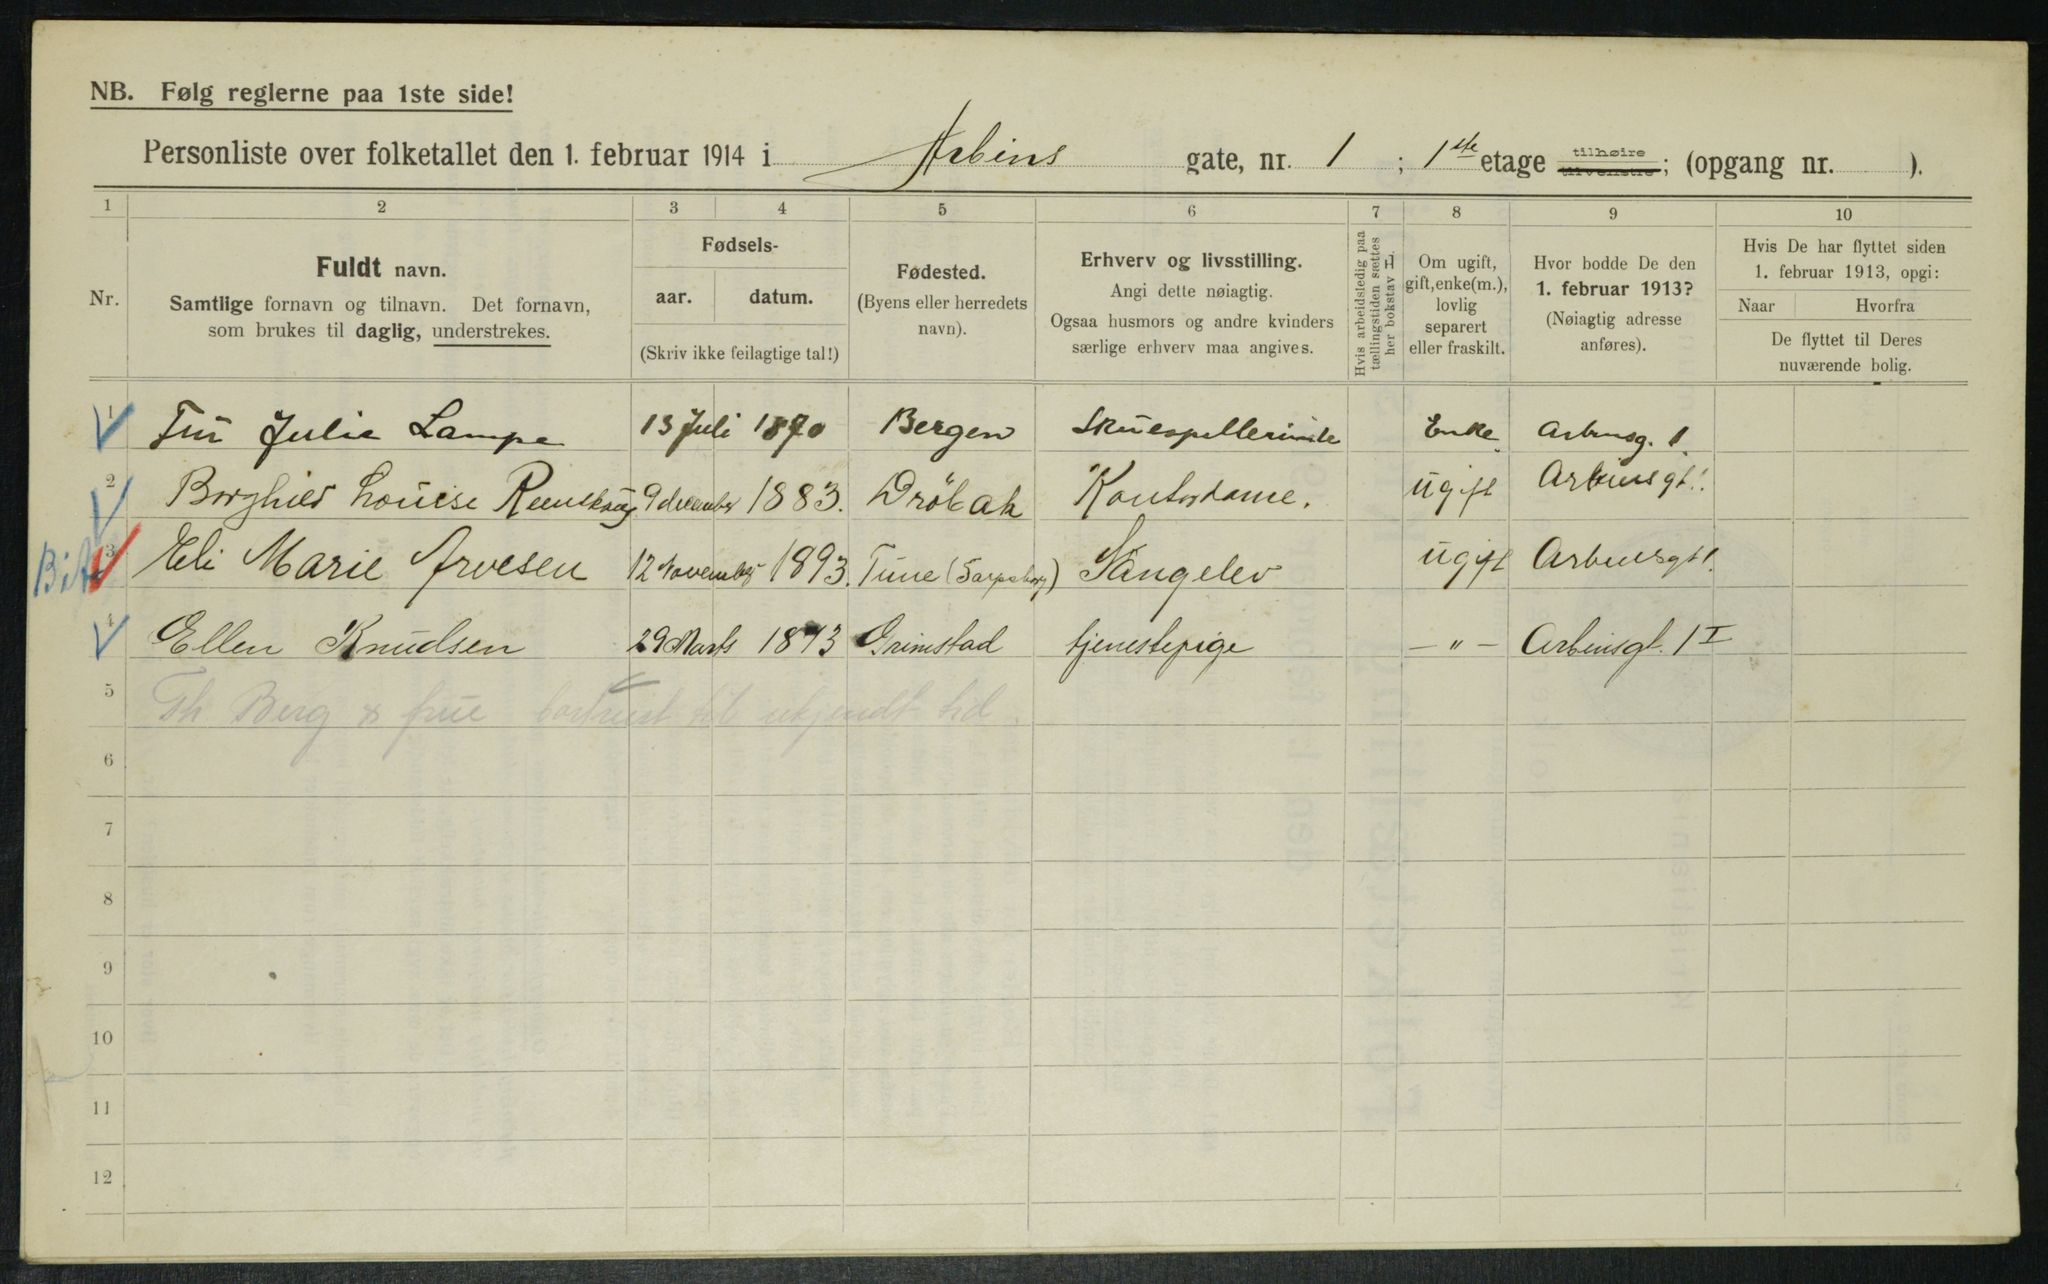 NB. Følg reglerne paa 1ste side!
Personliste over folketallet den 1. februar 1914 i Arbins gate, nr. 1 ; 1ste etage tilhøire tilvenstre; (opgang nr. ).
1 2 3 4 5 6 7 8 9 10
Nr.
Fuldt navn.
Samtlige fornavn og tilnavn. Det fornavn,
som brukes til daglig, understrekes.
Fødsels-
aar. datum.
(Skriv ikke feilagtige tal!)
Fødested.
(Byens eller herredets
navn).
Erhverv og livsstilling.
Angi dette nøiagtig.
Ogsaa husmors og andre kvinders
særlige erhverv maa angives.
Hvis arbeidsledig paa
tællingstiden sættes
her bokstav L.
Om ugift,
gift, enke(m.),
lovlig
separert
eller fraskilt.
Hvor bodde De den
1. februar 1913?
(Nøiagtig adresse
anføres).
Hvis De har flyttet siden
1. februar 1913, opgi:
Naar Hvorfra
De flyttet til Deres
nuværende bolig.
1 Fru Julie Lampe 13 Juli 1870 Bergen Skuespillerinde Enke Arbinsg. 1
2 Borghild Louise 9 december 1883. Drøbak Kontordame. ugift Arbinsgt 1.
3 Eli Marie Arvesen 12 November 1893. Tune (Sarpsborg) Sangelev ugift Arbinsgt 1.
4 Ellen Knudsen 29 Marts 1873 Grimstad tjenestepige — " — Arbinsgt. 1 I
5 Th. Berg & frue bortreist til ukjendt tid
6
7
8
9
10
11
12